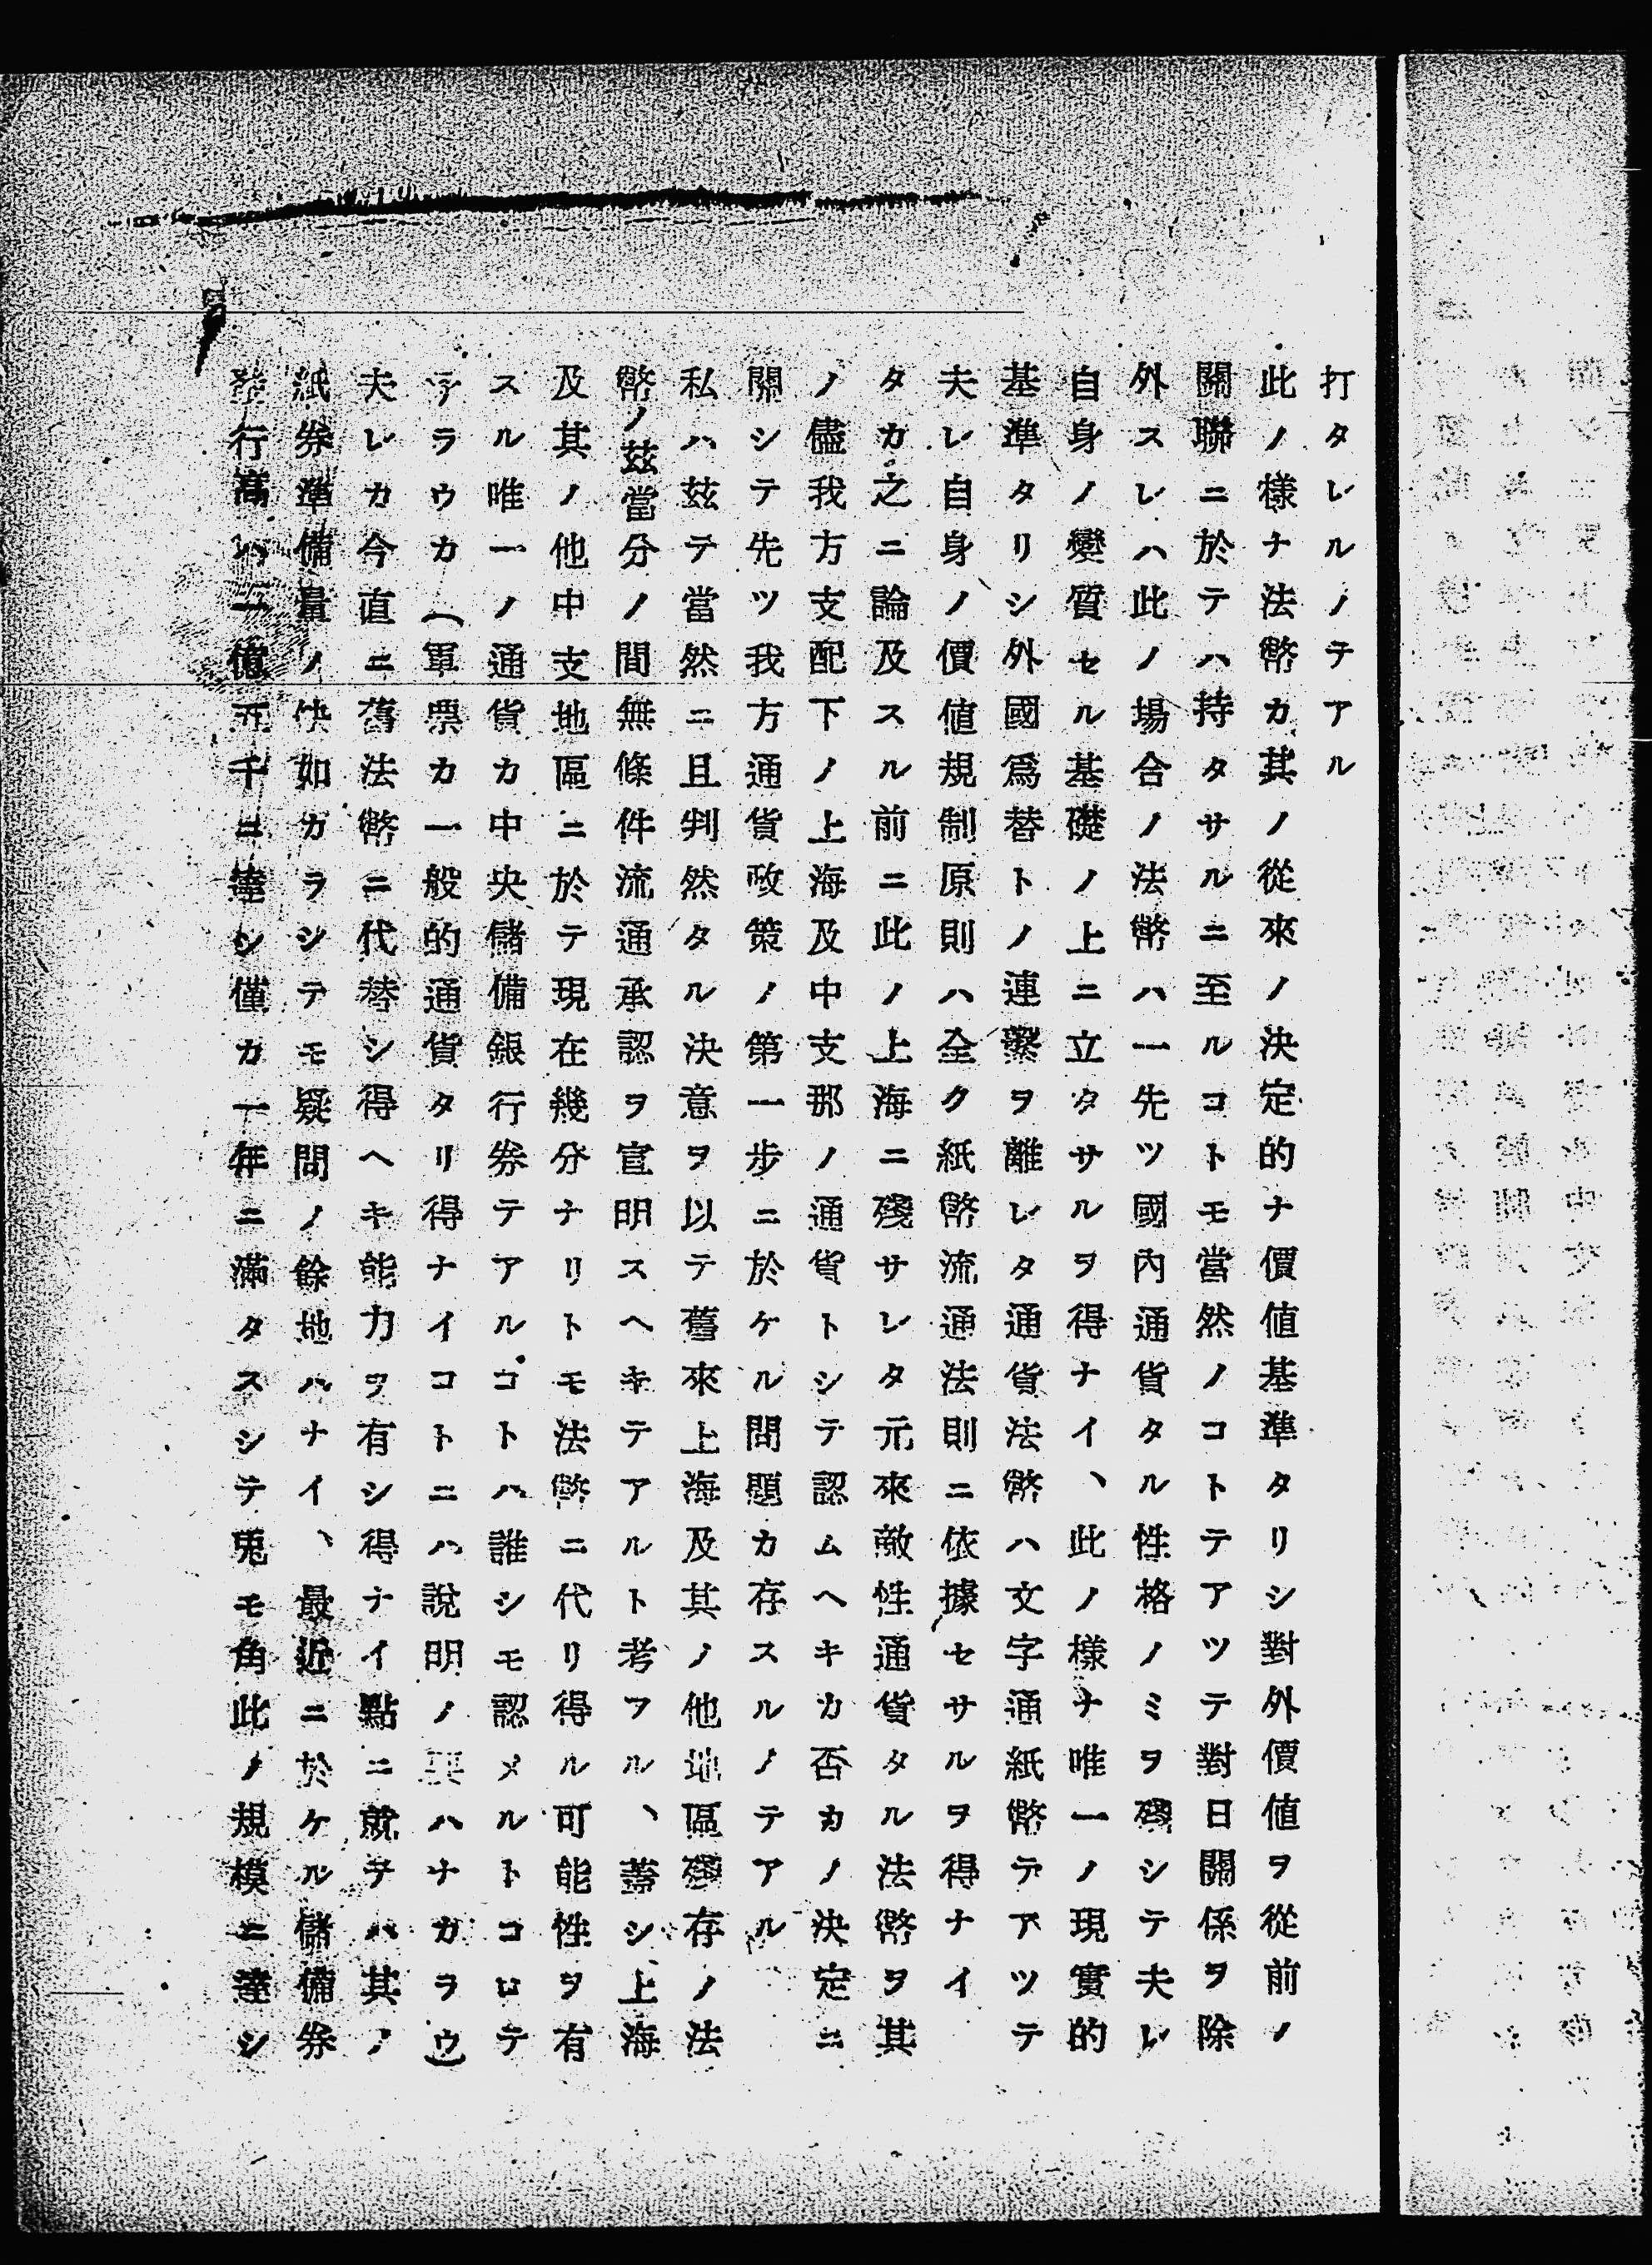 打タレルノテアル
此ノ樣ナ法幣カ其ノ從來ノ決定的ナ價値基準タリシ對外價値ヲ從前ノ
關聯ニ於テハ持タサルニ至ルコトモ當然ノコトテアツテ對日關係ヲ除
外スレハ此ノ場合ノ法幣ハ一先ツ國內通貨タル性格ノミヲ殘シテ夫レ
自身ノ變質セル基礎ノ上ニ立タサルヲ得ナイ、此ノ樣ナ唯一ノ現實的
基準タリシ外國爲替トノ連繫ヲ離レタ通貨法幣ハ文字通紙幣テアツテ
夫レ自身ノ價値規制原則ハ全ク紙幣流通法則ニ依據セサルヲ得ナイ
タカ之ニ論及スル前ニ此ノ上海ニ殘サレタ元來敵性通貨タル法幣ヲ其
ノ儘我方支配下ノ上海及中支那ノ通貨トシテ認ムヘキカ否カノ決定ニ
關シテ先ツ我方通貨政策ノ第一步ニ於ケル問題カ存スルノテアル
私ハ玆テ當然ニ且判然タル決意ヲ以テ舊來上海及其ノ他地區殘存ノ法
幣ノ玆當分ノ間無條件流通承認ヲ宣明スヘキテアルト考フル、蓋シ上海
及其ノ他中支地區ニ於テ現在幾分ナリトモ法幣ニ代リ得ル可能性ヲ有
スル唯一ノ通貨カ中央儲備銀行券テアルコトハ誰シモ認メルトコロテ
アラウカ（軍票カ一般的通貨タリ得ナイコトニハ說明ノ要ハナカラウ）
夫レカ今直ニ舊法幣ニ代替シ得ヘキ能力ヲ有シ得ナイ點ニ就テハ其ノ
紙券準備量ノ缺如カラシテモ疑問ノ餘地ハナイ、最近ニ於ケル儲備券
發行高ハ二億五千ニ達シ僅カ一年ニ滿タスシテ兎モ角此ノ規模ニ達シ